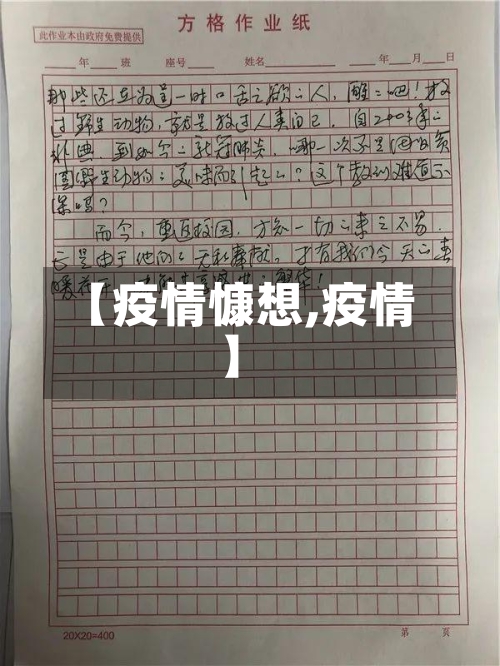 方格作业纸
此作业本由政府免费提供
年 班 座号 姓名 年 月 日
那些还在为逞一时口舌之欲的人,醒醒吧!放
过野生动物,就是放过人类自己。自2003年的
非典,到如今的新冠肺炎,哪一次不是因为贪
图野生动物的美味而引起的?这个教训难道不
深吗?
而今,重返校园,方知一切的来之不易,
它是由于他们的无私奉献,才有我们今天的春
暖花
【疫情慷想,疫情
】
20X20=400
第 页